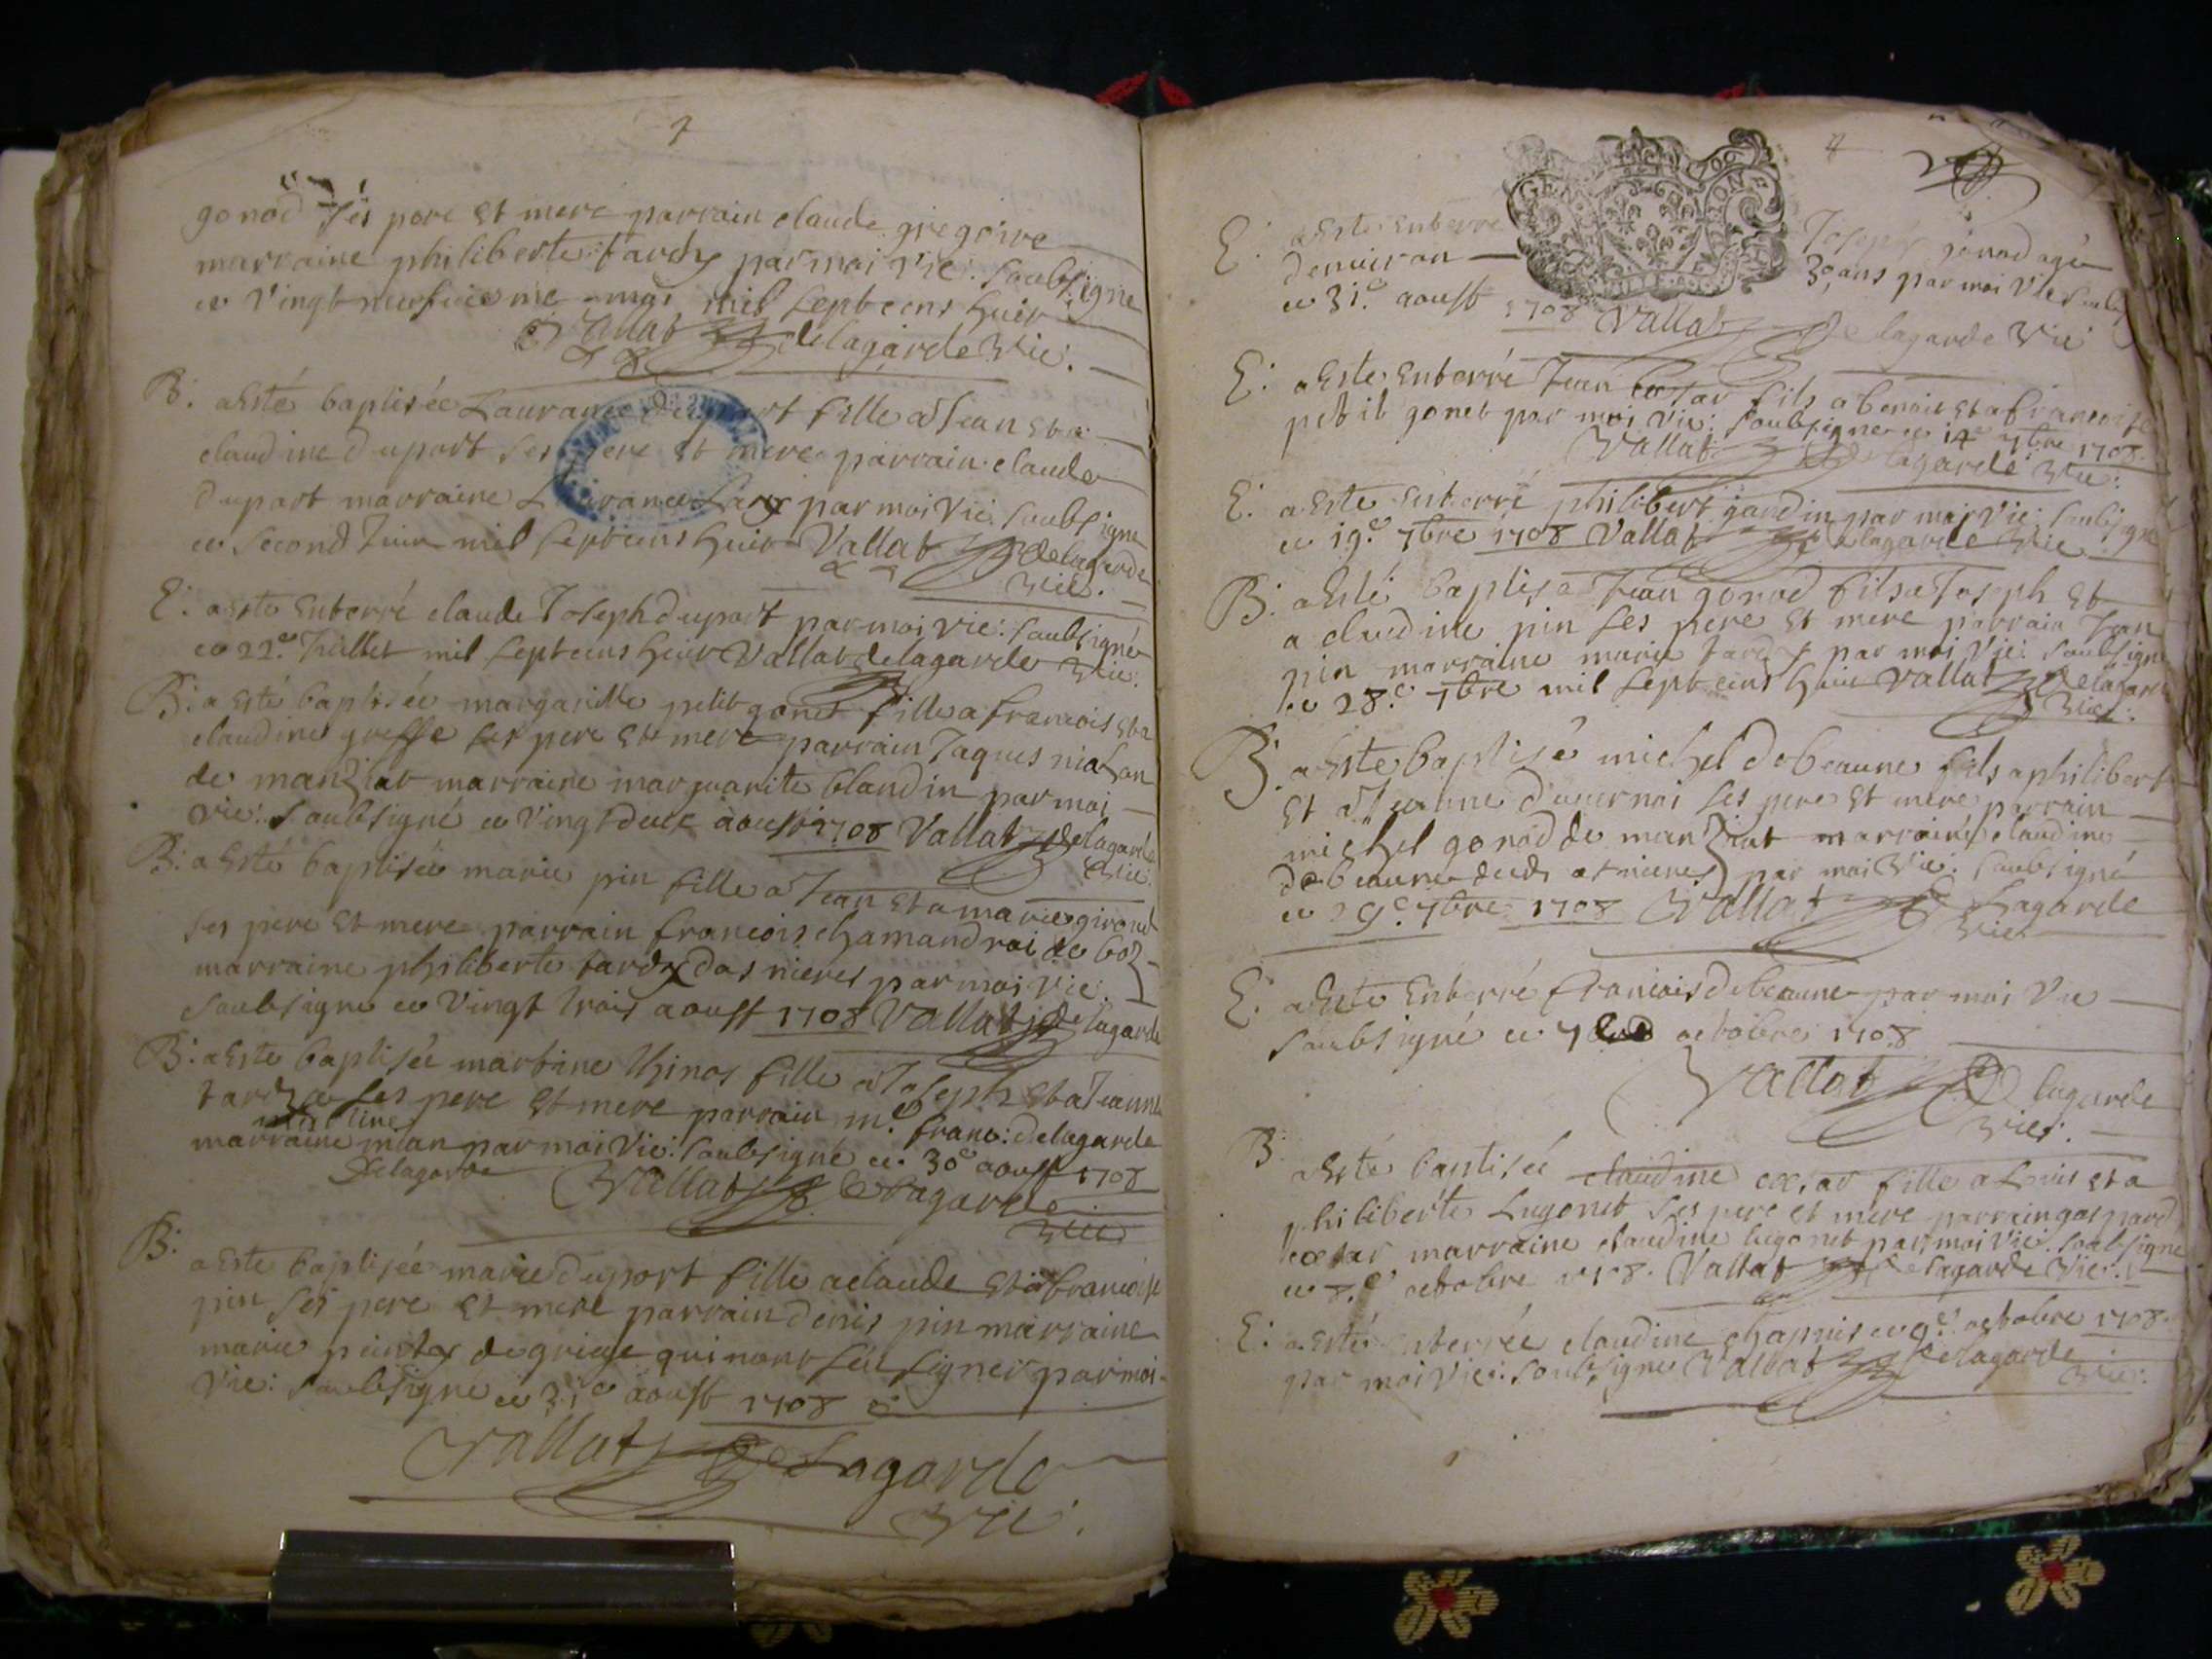 gonod ses pere et mere parrain claude gregoire
marraine philiberte tardy par moi vic: soubsigne
ce vingt neufvieme mai mil sept cens huit
Vallat delagarde vic:
B: a esté baptisée Laurance duport fille a Jean et a
claudine duport ses pere et mere parrain claude
duport marraine Laurance Lary par moi vic: soubsigne
ce second Juin mil sept cens huit Vallat delagarde
vic:
E: a esté enterré claude Joseph duport par moi vic: soubsigné
ce 22e Juillet mil sept cens huit Vallat delagarde vic:
B: a esté baptisée margaritte petit gonet fille a francois et a
claudine greffe ses pere et mere parrain Jaques
de manziat marraine marguarite blandin par moi
vic: soubsigné ce vingt deux aoust 1708 Vallat delagarde
vic:
B: a esté baptisée marie pin fille a Jean et a marie giroud
ses pere et mere parrain francois chamandrai de boz
marraine philiberte tardy dasnieres par moi vic:
soubsigne ce vingt trois aoust 1708 Vallat delagarde
B: a esté baptisée martine thinos fille a Joseph et a Jeanne
tardy ses pere et mere parrain m.e franc: delagarde
marraine par moi vic: soubsigné ce 30e aoust 1708
delagarde Vallat delagarde
vic:
B: a esté baptisée marie duport fille a claude et a francoise
pin ses pere et mere parrain denis pin marraine
marie de qui nont sçu signer par moi
vic: soubsigne ce 31e aoust 1708
Vallat deLagarde
vic:
GEN
E: a esté enterré Joseph gonod agé
denviron 30 ans par moi vic soubs
ce 31e aoust 1708 Vallat delagarde vic:
E: a esté enterré Jean coesar fils a benoit et a francoise
petit gonet par moi vic: soubsigne ce 14e 7bre 1708
Vallat delagarde vic:
E: a esté enterré philibert jardin par moi vic: soubsigne
ce 19e 7bre 1708 Vallat delagarde vic
B: a esté baptisé Jean gonod fils a Joseph et
a claudine pin ses pere et mere parrain Jean
pin marraine marie tardy par moi vic: soubsigne
ce 28e 7bre mil sept cens huit Vallat delagarde
vic:
B: a esté baptisé michel debeaune fils a philibert
et a Jeanne duuernai ses pere et mere parrain
michel gonod de manziat marraine claudine
debeaune dudt asnieres par moi vic: soubsigné
ce 29e 7bre 1708 Vallat delagarde
vic
E: a esté enterré francois debeaune par moi vic
soubsigné ce 7 octobre 1708
Vallat delagarde
vic:
B: a esté baptisée claudine coesar fille a Louis et a
philiberte Lugonet ses pere et mere parrain gaspard
coesar marraine claudine lugonet par moi vic: soubsigne
ce 8e octobre 1708. Vallat delagarde vic:
E: a esté enterrée claudine chapuis ce 9e octobre 1708
par moi vic: soubsigne Vallat delagarde
vic: